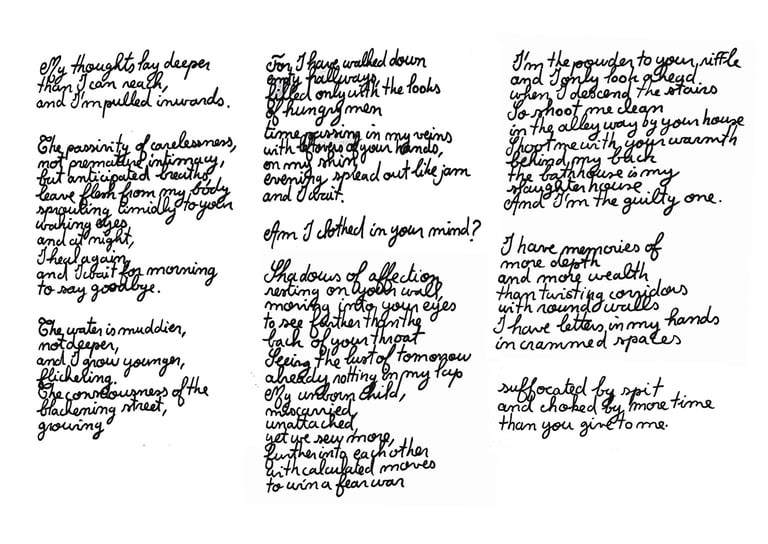 My thoughts lay deeper
than I can reach,
and I'm pulled inwards.
The passivity of carelessness,
not premature intimacy,
but anticipated breaths,
leave flesh from my body
sprouting timidly to your
waking eyes
and at night,
I heal again,
and I wait for morning
to say goodbye.
The water is muddier,
not deeper,
and I grow younger,
flickering.
The consciousness of the
blackening street,
growing
For I have walked down
empty hallways,
filled only with the looks
of hungry men
time passing in my veins
with leftovers of your hands,
on my shirt,
evening spread out like jam
and I wait.
Am I clothed in your mind?
Shadows of affection
resting on your wall,
moving into your eyes
to see farther than the
back of your throat
Seeing the lust of tomorrow
already rotting on my lap
My unborn child,
miscarried,
unattached,
yet we sew more,
further into each other
with calculated moves
to win a fear war
I'm the powder to your riffle
and I only look ahead
when I descend the stairs
So shoot me clean
in the alley way by your house
Shoot me with your warmth
behind my back
the bathhouse is my
slaughterhouse
And I'm the guilty one.
I have memories of
more depth
and more wealth
than twisting corridors
with round walls
I have letters in my hands
in crammed spaces
suffocated by spit
and choked by more time
than you give to me.